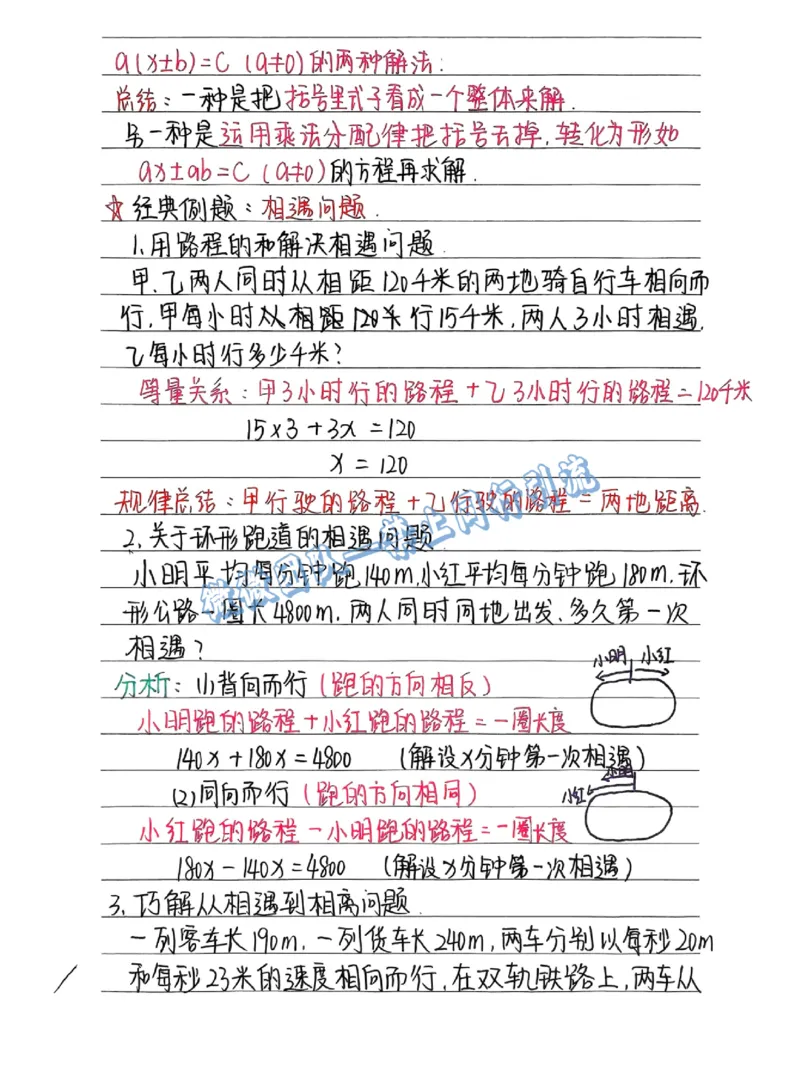 a(x±b)=C (a≠0)的两种解法:
总结:一种是把括号里式子看成一个整体来解.
另一种是运用乘法分配律把括号去掉,转化为形如
ax±ab=C (a≠0)的方程再求解.
☆经典例题:相遇问题.
1.用路程的和解决相遇问题.
甲、乙两人同时从相距120千米的两地骑自行车相向而
行,甲每小时从相距120米行15千米,两人3小时相遇,
乙每小时行多少千米?
等量关系:甲3小时行的路程+乙3小时行的路程=120千米
15×3+3x=120
x=120
规律总结:甲行驶的路程+乙行驶的路程=两地距离.
2.关于环形跑道的相遇问题.
小明平均每分钟跑140m,小红平均每分钟跑180m,环
形公路一圈长4800m,两人同时同地出发,多久第一次
相遇?
小明 小红
分析:(1)背向而行(跑的方向相反)
小明跑的路程+小红跑的路程=一圈长度
140x+180x=4800 (解设x分钟第一次相遇)
小明
(2)同向而行(跑的方向相同)
小红
小红跑的路程-小明跑的路程=一圈长度
180x-140x=4800 (解设x分钟第一次相遇)
3.巧解从相遇到相离问题.
一列客车长190m,一列货车长240m,两车分别以每秒20m
和每秒23米的速度相向而行,在双轨铁路上,两车从